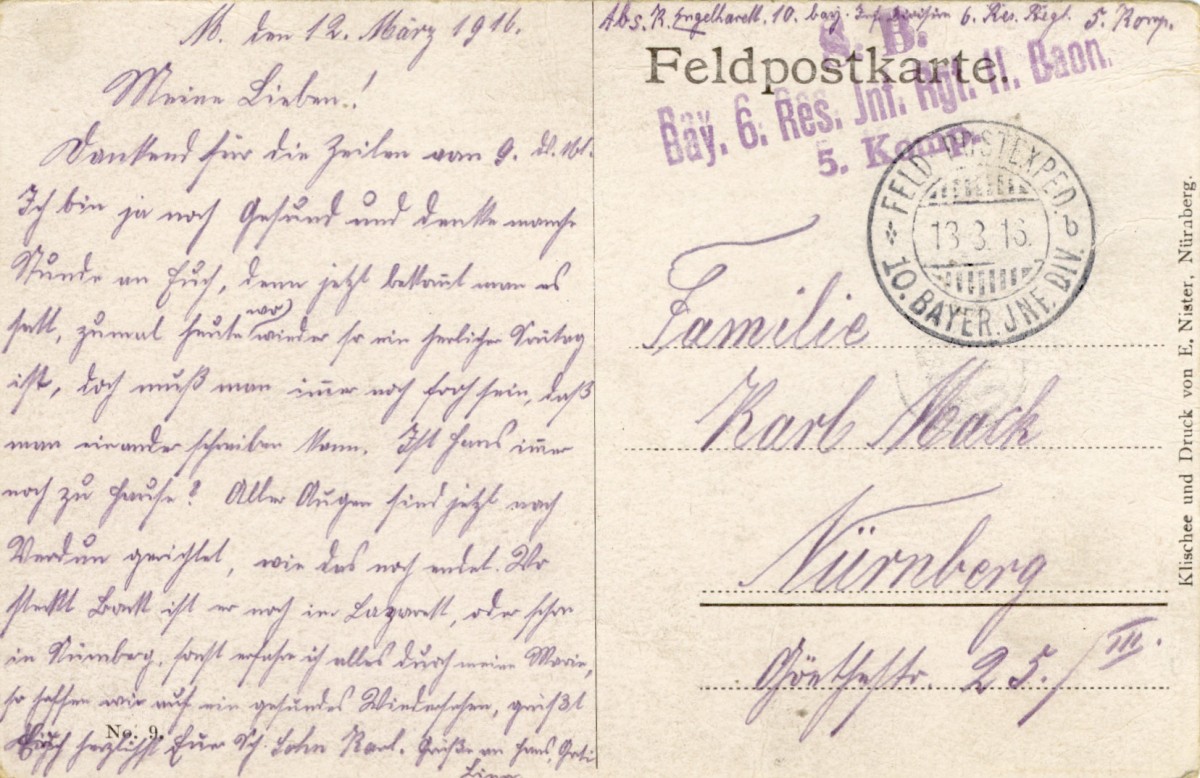 M. den 12. März 1916.
Meine Lieben.!
Dankend für die Zeilen vom 9. ds. Mt.
Ich bin ja noch Gesund und denke manche
Stunde an Euch, denn jetzt bekomt man es
satt, zumal heute wo wieder so ein herlicher Sontag
ist, doch muß man imer noch froh sein, daß
man einander schreiben kann. Ist Hans imer
noch zu Hause? Aller Augen sind jetzt nach
Verdun gerichtet, wie das noch endet. Wo
steckt ist er noch im Lazarett, oder schon
in Nürnberg, sonst erfahre ich alles durch meine Marie,
so hoffen wir auf ein gesundes Wiedersehen, grüßt
Euch herzlichst Euer Sch. Sohn Karl. Grüße an Hans,
No. 9.
Abs. R. Engelhardt. 10. bay. Inf. Division 6. Res. Regt. 5. Komp.
S. B.
Feldpostkarte.
Bay. 6. Res. Inf. Rgt. II. Baon.
5. Komp.
FELD-POSTEXPED. b
13.3.16.
10. BAYER. INF. DIV.
Familie
Karl Mack
Nürnberg
Göethestr. 25./III.
Klischee und Druck von E. Nister, Nürnberg.